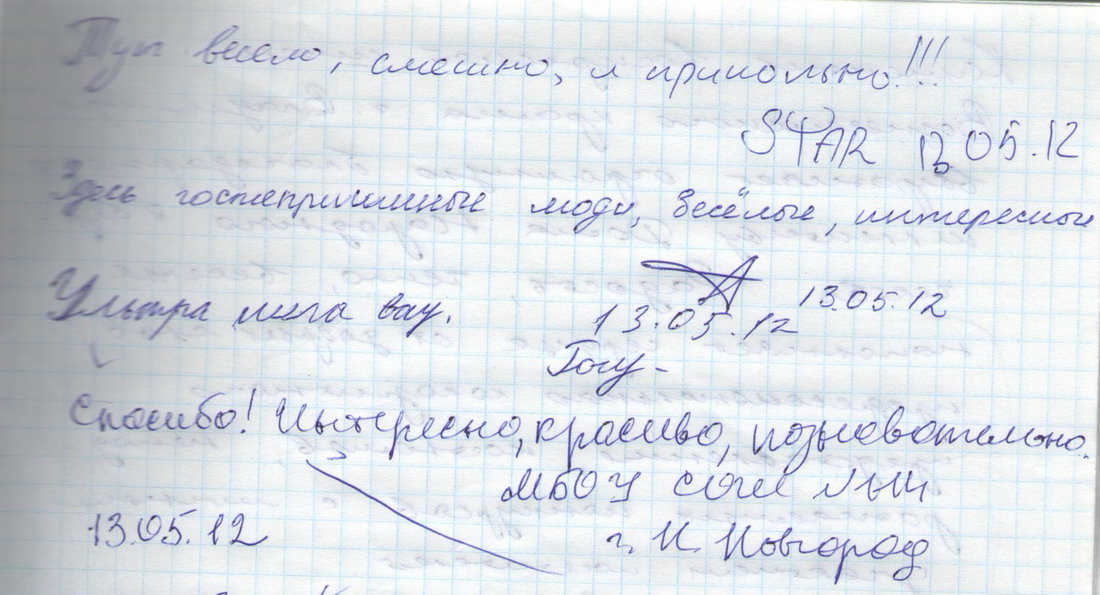 Тут весело, смешно, и прикольно!!!
STAR 13.05.12
Здесь гостеприимные люди, весёлые, интересные
13.05.12
Ультра мега вау.
13.05.12
Спасибо! Интересно, красиво, познавательно.
МБОУ СОШ
13.05.12
г. Н. Новгород